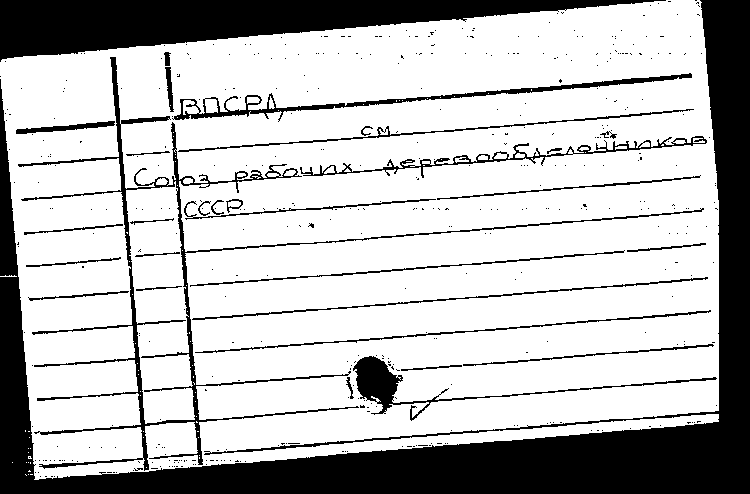 ВПСРД
см.
Союз рабочих деревообделочников
СССР